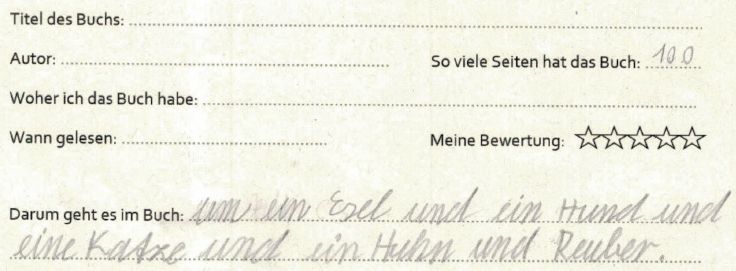 Titel des Buchs:
Autor: So viele Seiten hat das Buch: 100
Woher ich das Buch habe:
Wann gelesen: Meine Bewertung:
Darum geht es im Buch: um ein Esel und ein Hund und
eine Katze und ein Huhn und Reuber.